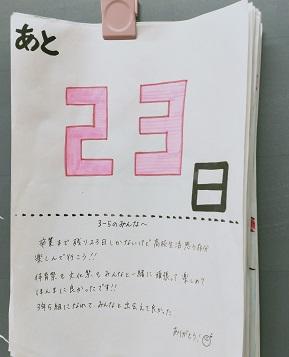 あと
23
日
3-5のみんなへ
卒業まで残り23日しかないけど高校生活思う存分
楽しんで行こう!!
体育祭も文化祭もみんなと一緒に頑張って楽しめて
ほんまに良かったです!!
3年5組になれて、みんなと出会えて良かった
ありがとう!